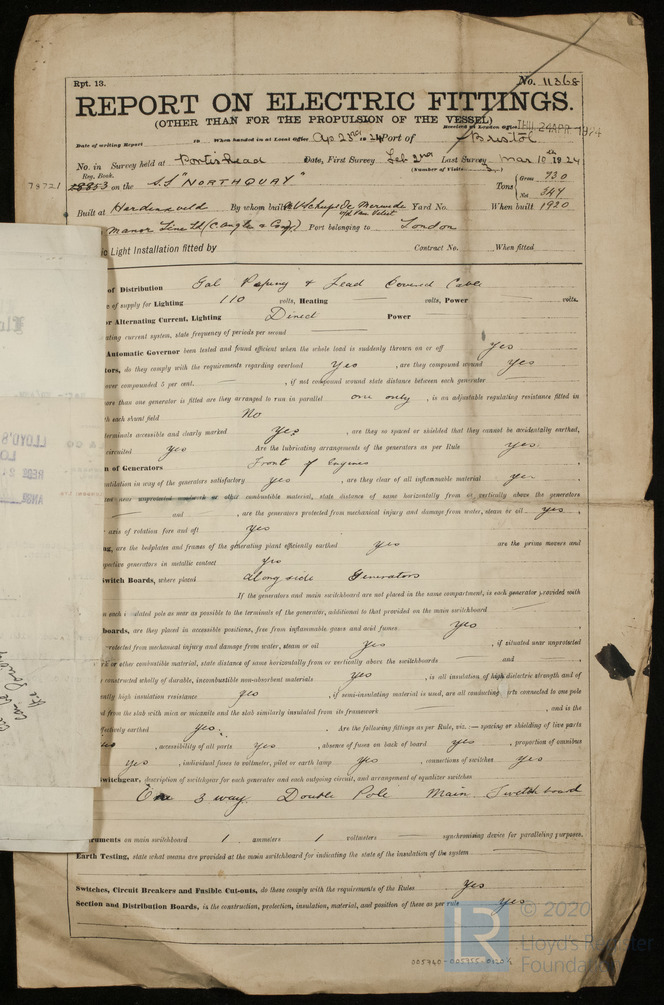 Rpt. 13.
No. 11368
REPORT ON ELECTRIC FITTINGS.
(OTHER THAN FOR THE PROPULSION OF THE VESSEL)
Received at London Office THU. 24 APR 1924
Date of writing Report 19 When handed in at Local Office Apr 23rd 1924 Port of Bristol
No. in Survey held at Portishead Date, First Survey Feb 2nd Last Survey Mar. 10th 1924
Reg. Book. (Number of Visits 3)
78721 28853 on the S.S "NORTHQUAY" Tons { Gross 730 Net 347
Built at Hardinxveld By whom built Yard No. When built 1920
Manor Line Ltd Port belonging to London
ic Light Installation fitted by Contract No. When fitted
of Distribution Lead Covered Cable
e of supply for Lighting 110 volts, Heating volts, Power volts.
or Alternating Current, Lighting Direct Power
ating current system, state frequency of periods per second
Automatic Governor been tested and found efficient when the whole load is suddenly thrown on or off Yes
tors, do they comply with the requirements regarding overload Yes, are they compound wound Yes
over compounded 5 per cent., if not compound wound state distance between each generator
ore than one generator is fitted are they arranged to run in parallel one only, is an adjustable regulating resistance fitted in
h each shunt field No
terminals accessible and clearly marked Yes, are they so spaced or shielded that they cannot be accidentally earthed,
circuited Yes Are the lubricating arrangements of the generators as per Rule Yes.
n of Generators Front of Engines
ntilation in way of the generators satisfactory Yes, are they clear of all inflammable material yes
near unprotected woodwork or other combustible material, state distance of same horizontally from or vertically above the generators
and , are the generators protected from mechanical injury and damage from water, steam or oil yes.
axis of rotation fore and aft Yes
ng, are the bedplates and frames of the generating plant efficiently earthed Yes are the prime movers and
spective generators in metallic contact Yes
Switch Boards, where placed along side Generators
If the generators and main switchboard are not placed in the same compartment, is each generator provided with
n each insulated pole as near as possible to the terminals of the generator, additional to that provided on the main switchboard
boards, are they placed in accessible positions, free from inflammable gases and acid fumes Yes
protected from mechanical injury and damage from water, steam or oil Yes, if situated near unprotected
rk or other combustible material, state distance of same horizontally from or vertically above the switchboards and
constructed wholly of durable, incombustible non-absorbent materials Yes, is all insulation of high dielectric strength and of
ently high insulation resistance Yes, if semi-insulating material is used, are all conducting parts connected to one pole
d from the slab with mica or micanite and the slab similarly insulated from its framework , and is the
fectively earthed Yes. Are the following fittings as per Rule, viz.:— spacing or shielding of live parts
, accessibility of all parts Yes, absence of fuses on back of board Yes, proportion of omnibus
Yes, individual fuses to voltmeter, pilot or earth lamp Yes, connections of switches Yes
Switchgear, description of switchgear for each generator and each outgoing circuit, and arrangement of equaliser switches
One 3 way. Double Pole Main Switchboard
truments on main switchboard 1 ammeters 1 voltmeters synchronising device for paralleling purposes.
Earth Testing, state what means are provided at the main switchboard for indicating the state of the insulation of the system
Switches, Circuit Breakers and Fusible Cut-outs, do these comply with the requirements of the Rules Yes
Section and Distribution Boards, is the construction, protection, insulation, material, and position of these as per rule Yes
LR © 2020
Lloyd's Register
Foundation